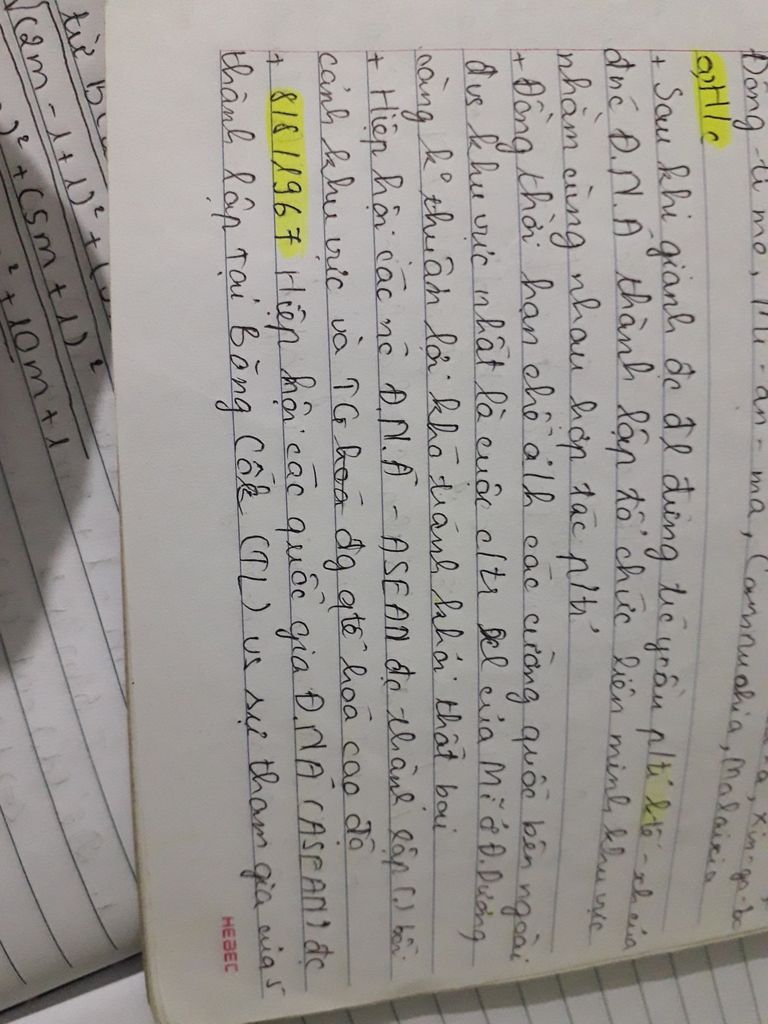 Đông-ti mo, Mi-an-ma, Campuchia, Malaixia
a, H/c
+ Sau khi giành đc đl đứng tr ycầu p/tr ktế - xh của
đnc Đ.N.Á thành lập tổ chức liên minh khu vực
nhằm cùng nhau hợp tác p/tr
+ Đồng thời hạn chế a/h các cường quốc bên ngoài
đvs khu vực nhất là cuộc c/tr xl của Mĩ ở Đ.Dương
càng k° thuận lợi khó tránh khỏi thất bại
+ Hiệp hội các nc Đ.N.Á - ASEAN đc thành lập (.) bối
cảnh khu vực và TG hoà đg qtế hoá cao độ
+ 8/8/1967 Hiệp hội các quốc gia Đ.N.Á (ASEAN) đc
thành lập tại Băng Cốc (TL) vs sự tham gia của 5
HEBEC
(2m - 1 + 1)² +
² + (5m + 1)²
² + 10m + 1